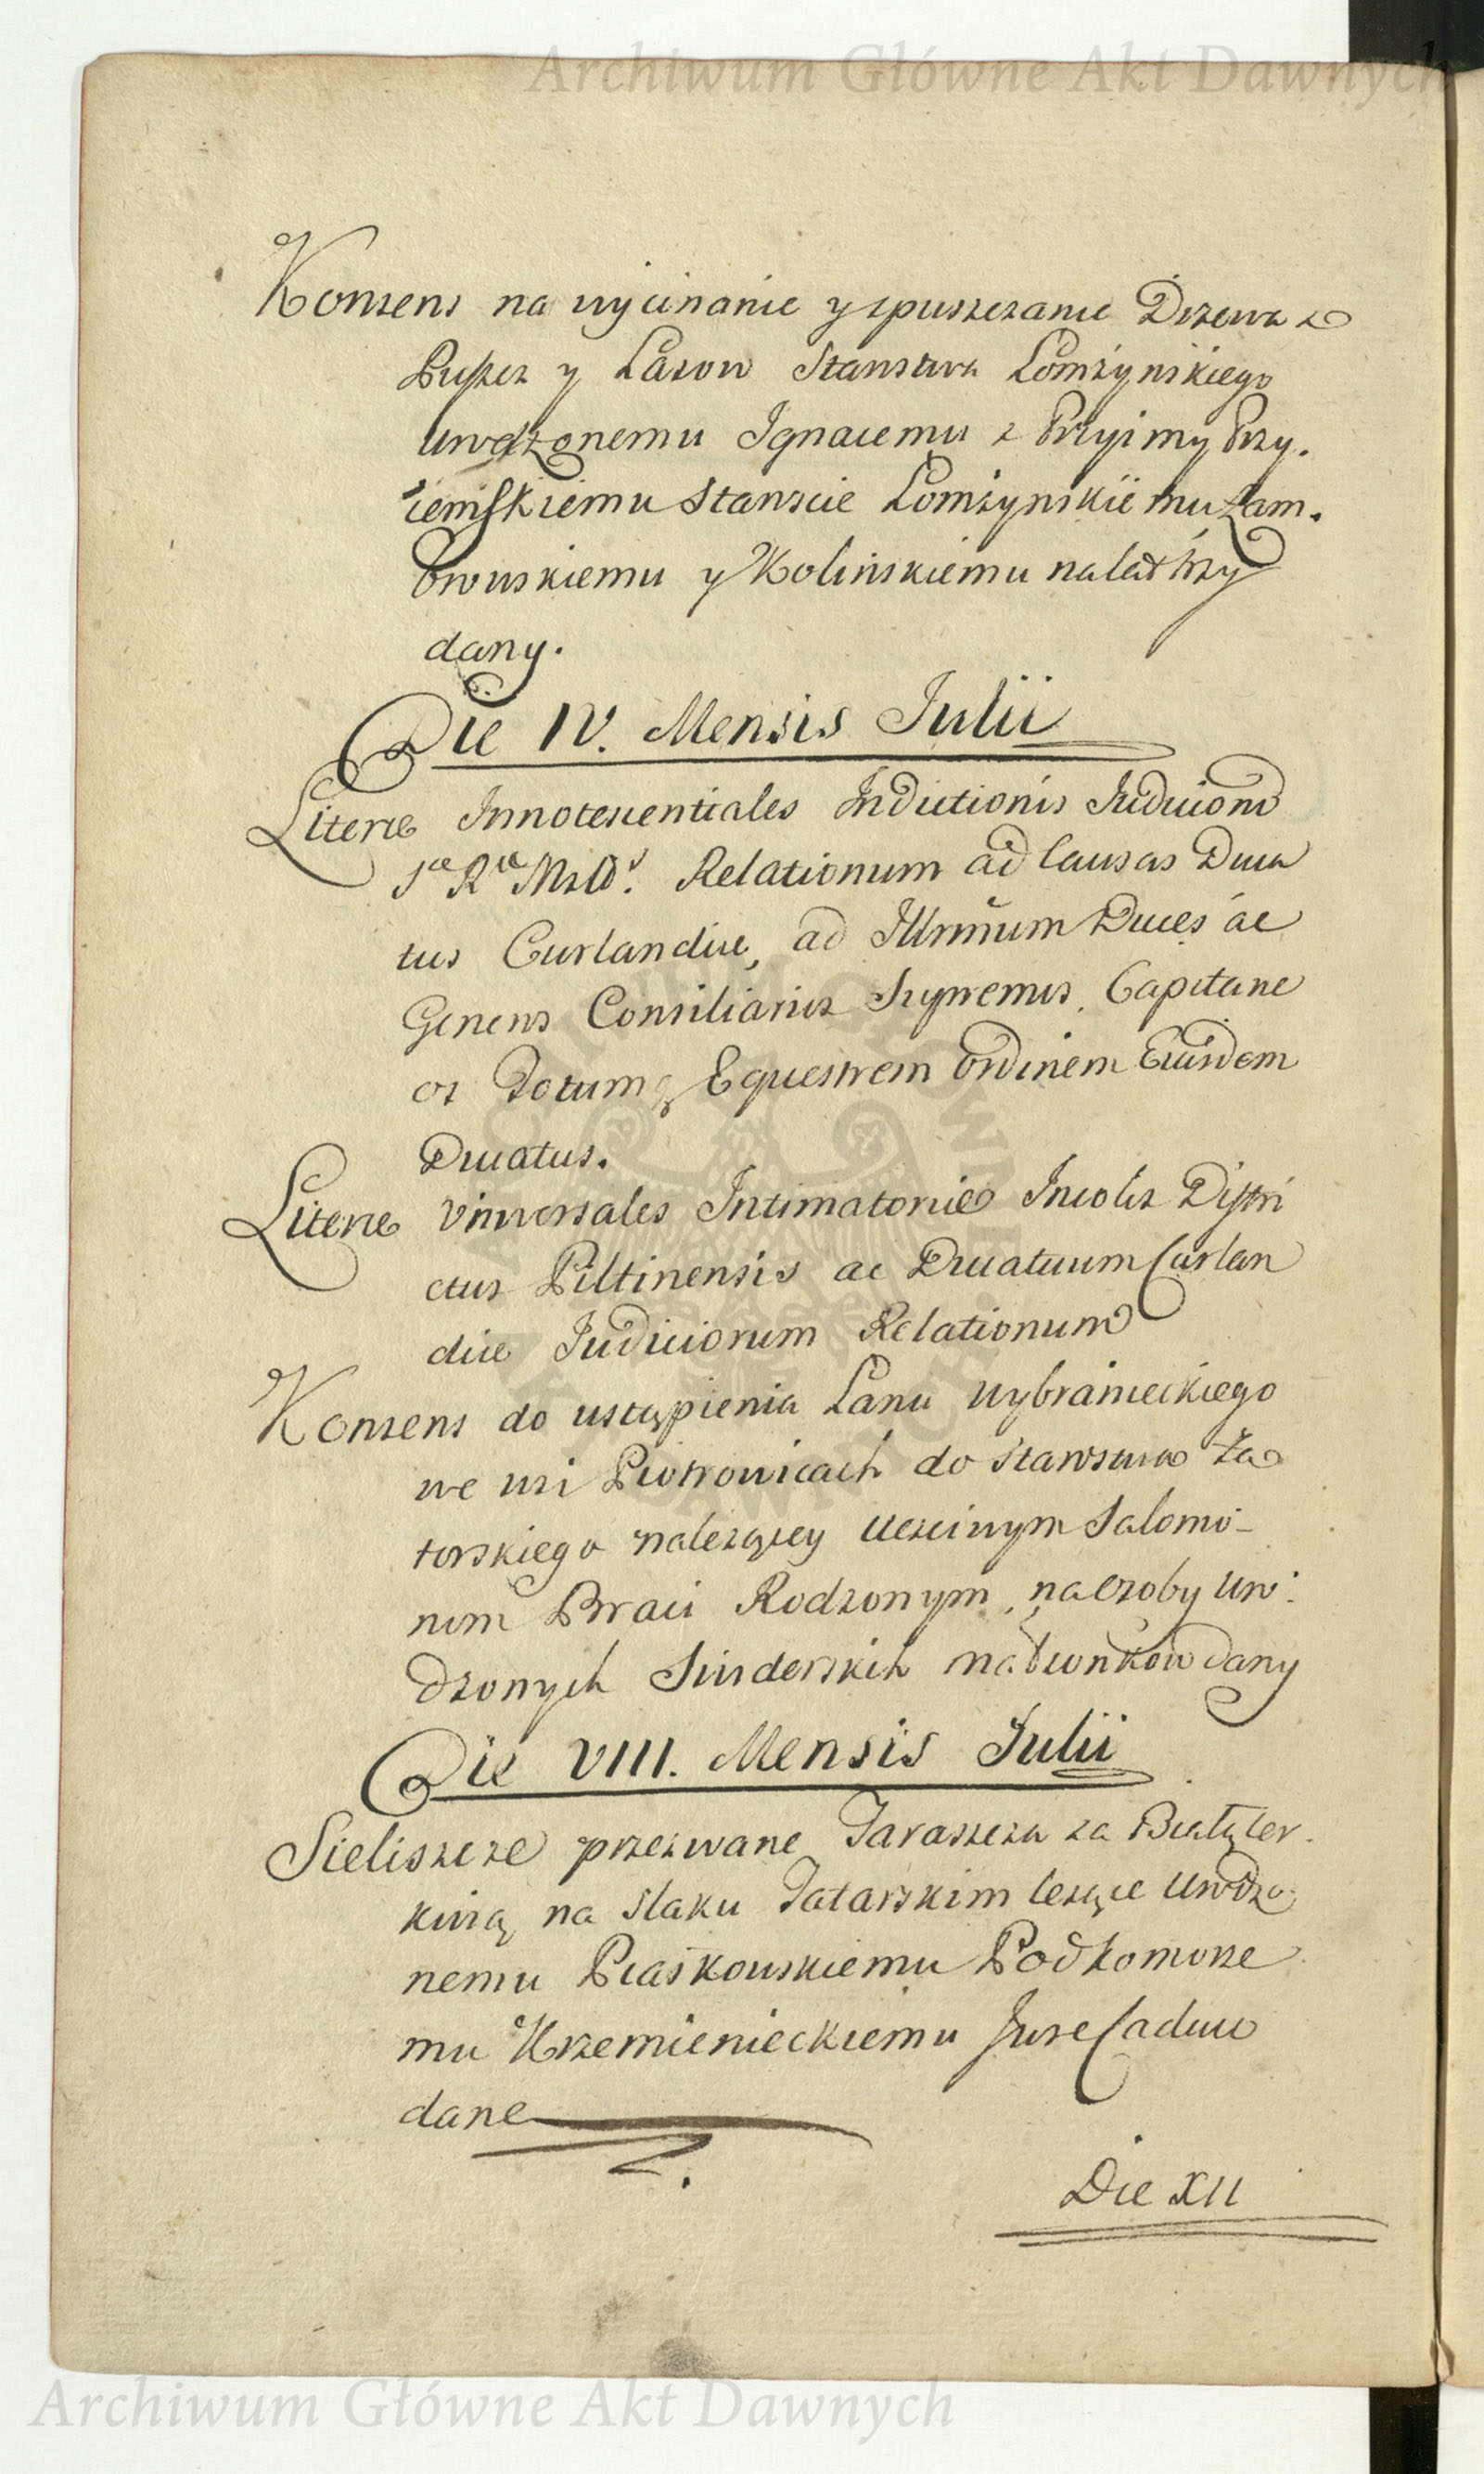 Archiwum Główne Akt Dawnych
Konsens na wycinanie y spuszczanie Drzewa z
Puszcz y Lasow Starostwa Łomżynskiego
Urodzonemu Ignacemu z Przyimy Przy.
iemskiemu Staroscie Łomżynskiemu Zam.
browskiemu y Kolinskiemu na lat trzy
dany.
Die IV. Mensis Julii
Literæ Innotescentiales Indictionis Judiciorũ
Sæ Ræ Mttis. Relationum ad Causas Duca
tus Curlandiæ, ad Illrmũm Ducẽ ac
Generos Consiliarios Supremos, Capitane
os Totumq Equestrem Ordinem Eiusdem
Ducatus.
Literæ Universales Intimatoriæ Incolis Distri
ctus Piltinensis ac Ducatuum Curlan
diæ Judiciorum Relationum
Konsens do ustąpienia Łanu Wybranieckiego
we wsi Piotrowicach do Starostwa Za
torskiego należącey Uczciwym Salomo-
nom Braci Rodzonym, na Osoby Uro:
dzonych Małżonkow dany
Die VIII. Mensis Julii
Sieliszcze przezwane Taraszcza za Białącer.
kwią na Slaku Tatarskim leżące Urodzo
nemu Piaskowskiemu Podkomorze
mu Krzemienieckiemu Jure Caduco
dane
Die XII
Archiwum Główne Akt Dawnych